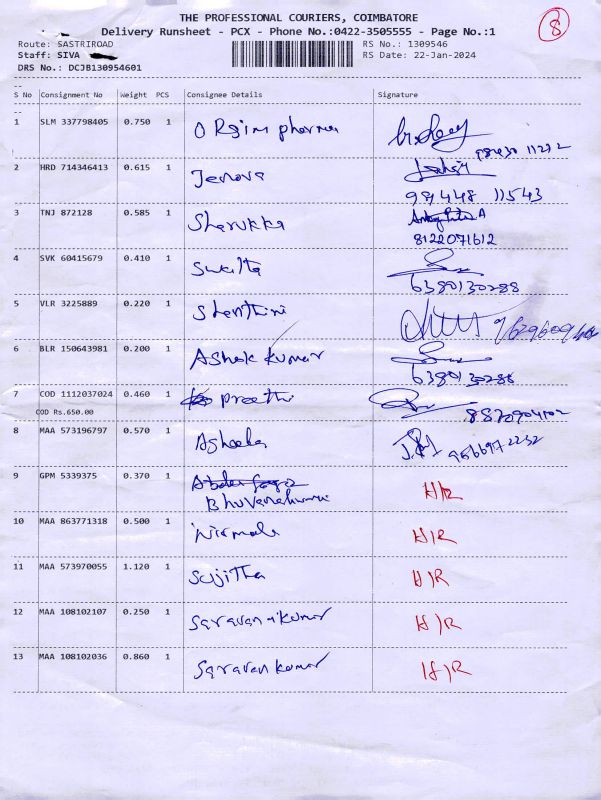 THE PROFESSIONAL COURIERS, COIMBATORE
8
Delivery Runsheet - PCX - Phone No.:0422-3505555 - Page No.:1
Route: SASTRIROAD RS No.: 1309546
Staff: SIVA RS Date: 22-Jan-2024
DRS No.: DCJB130954601
S No Consignment No Weight PCS Consignee Details Signature
1 SLM 337798405 0.750 1 pharma
2 HRD 714346413 0.615 1 Jenova
99448 11543
3 TNJ 872128 0.585 1 Sharukka
8122071612
4 SVK 60415679 0.410 1
6380130288
5 VLR 3225889 0.220 1 Shenthini
6 BLR 150643981 0.200 1 Ashok Kumar
6380130288
7 COD 1112037024 0.460 1 Preethi
COD Rs.650.00
8 MAA 573196797 0.570 1
9566972232
9 GPM 5339375 0.370 1
H/R
10 MAA 863771318 0.500 1 Nirmala H/R
11 MAA 573970055 1.120 1 Sujitha H/R
12 MAA 108102107 0.250 1 Saravanakumar H/R
13 MAA 108102036 0.860 1 Saravan kumar H/R